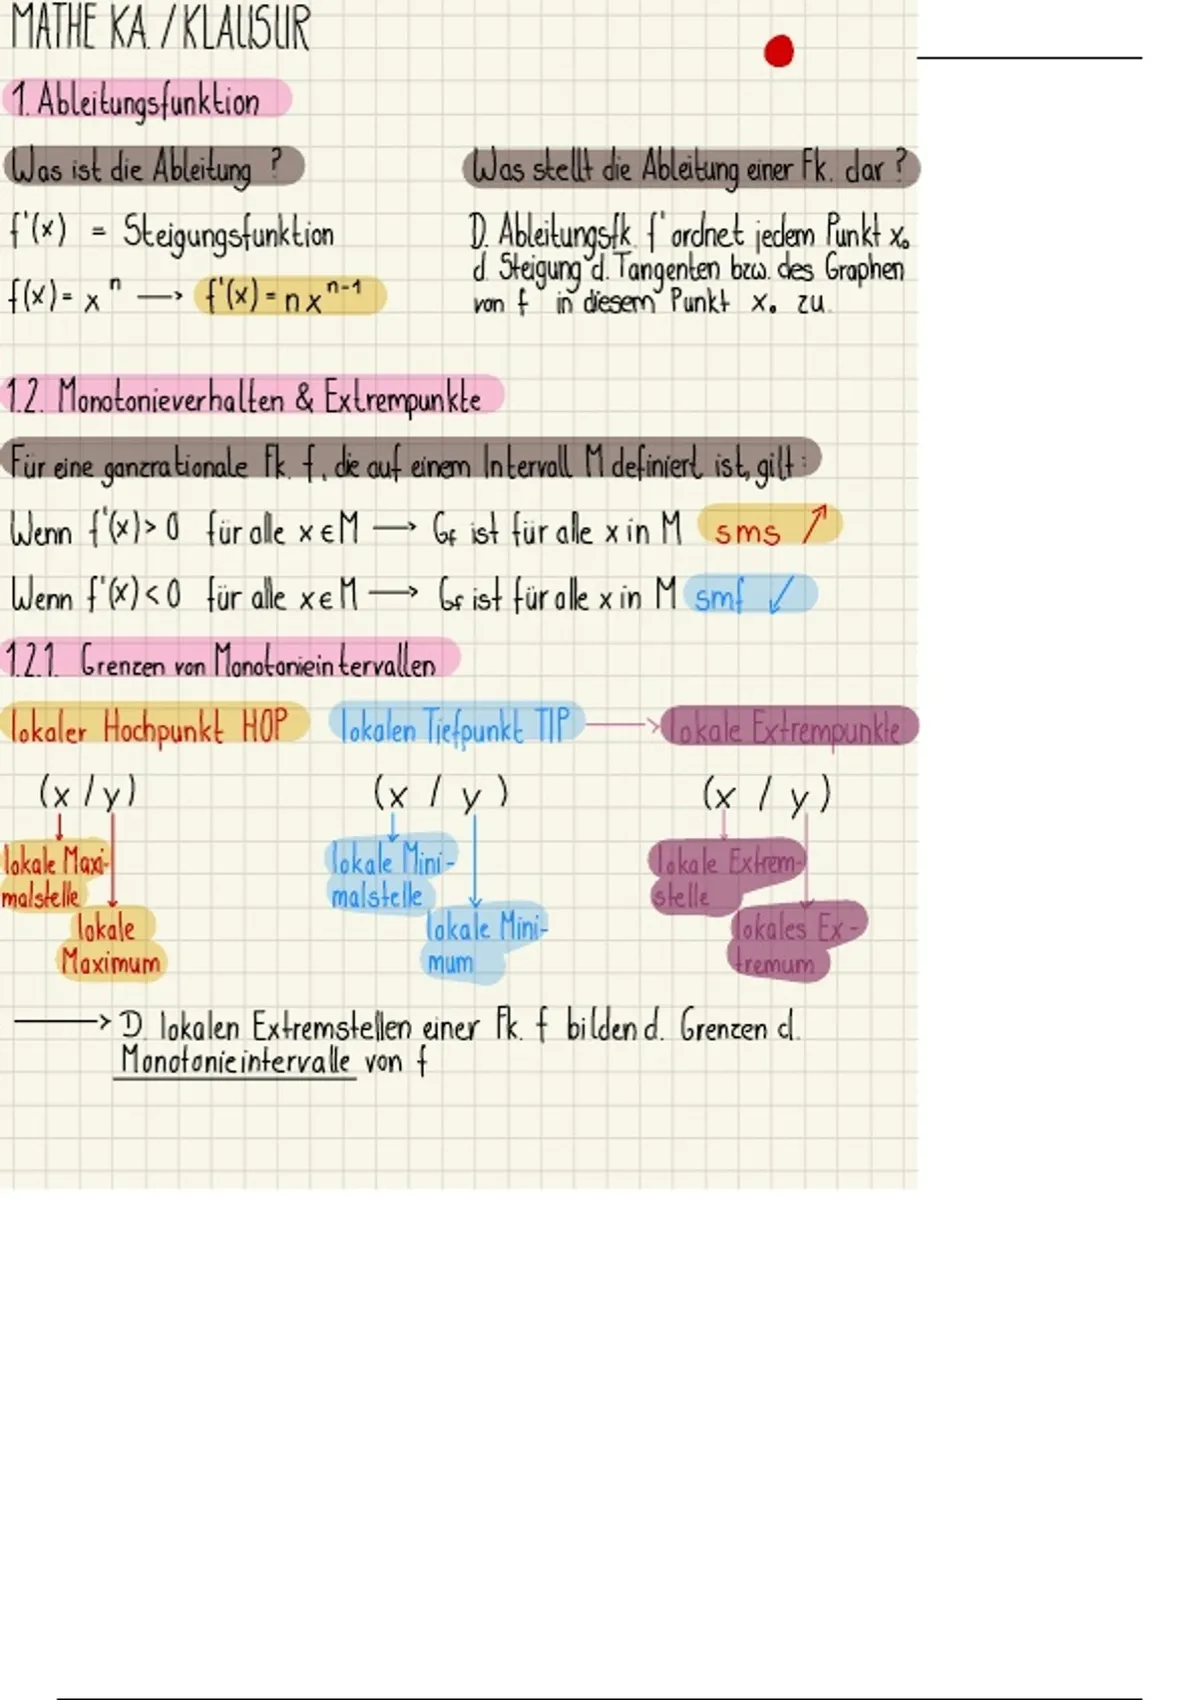 MATHE KA. / KLAUSUR
1. Ableitungsfunktion
Was ist die Ableitung ?
f'(x) = Steigungsfunktion
f(x) = x^n → f'(x) = n x^{n-1}
Was stellt die Ableitung einer Fk. dar ?
D. Ableitungsfk. f' ordnet jedem Punkt x₀
d. Steigung d. Tangenten bzw. des Graphen
von f in diesem Punkt x₀ zu.
1.2. Monotonieverhalten & Extrempunkte
Für eine ganzrationale Fk. f, die auf einem Intervall M definiert ist, gilt:
Wenn f'(x) > 0 für alle x ∈ M → Gf ist für alle x in M sms ↗
Wenn f'(x) < 0 für alle x ∈ M → Gf ist für alle x in M smf ↙
1.2.1. Grenzen von Monotonieintervallen
lokaler Hochpunkt HOP lokalen Tiefpunkt TIP → lokale Extrempunkte
(x / y) (x / y) (x / y)
lokale Maxi-
malstelle
lokale
Maximum
lokale Mini-
malstelle
lokale Mini-
mum
lokale Extrem-
stelle
lokales Ex-
tremum
→ D. lokalen Extremstellen einer Fk. f bilden d. Grenzen d.
Monotonieintervalle von f